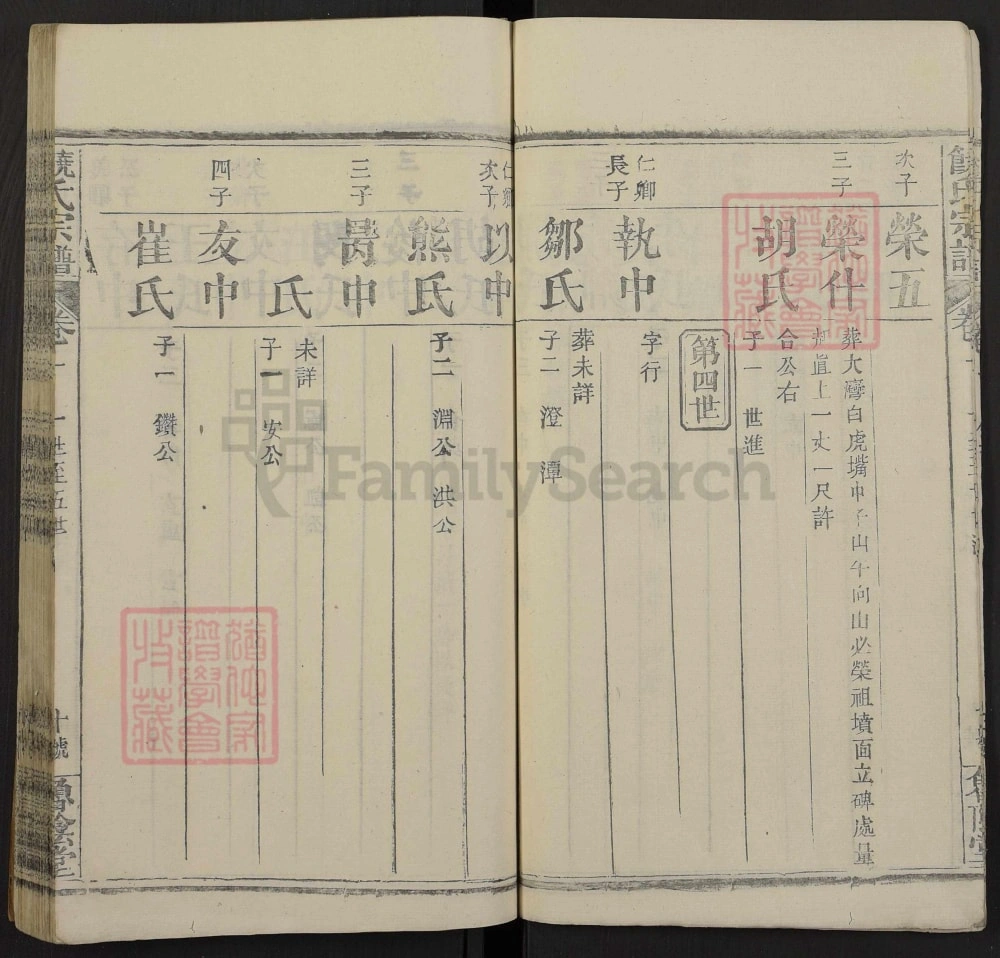 次子
榮五
三子
榮什
葬大灣白虎嘴中子山午向山必榮祖墳面立碑處量
制直上一丈一尺許
胡氏
合公右
子一 世進
第四世
仁卿
長子
執中
字行
鄒氏
葬未詳
子二 澄 潭
仁卿
次子
以中
熊氏
子二 淵公 洪公
三子
黃中
氏
未詳
子一 安公
四子
友中
崔氏
子一 鑽公
饒氏宗譜
卷一
一世至五世
十號
FamilySearch